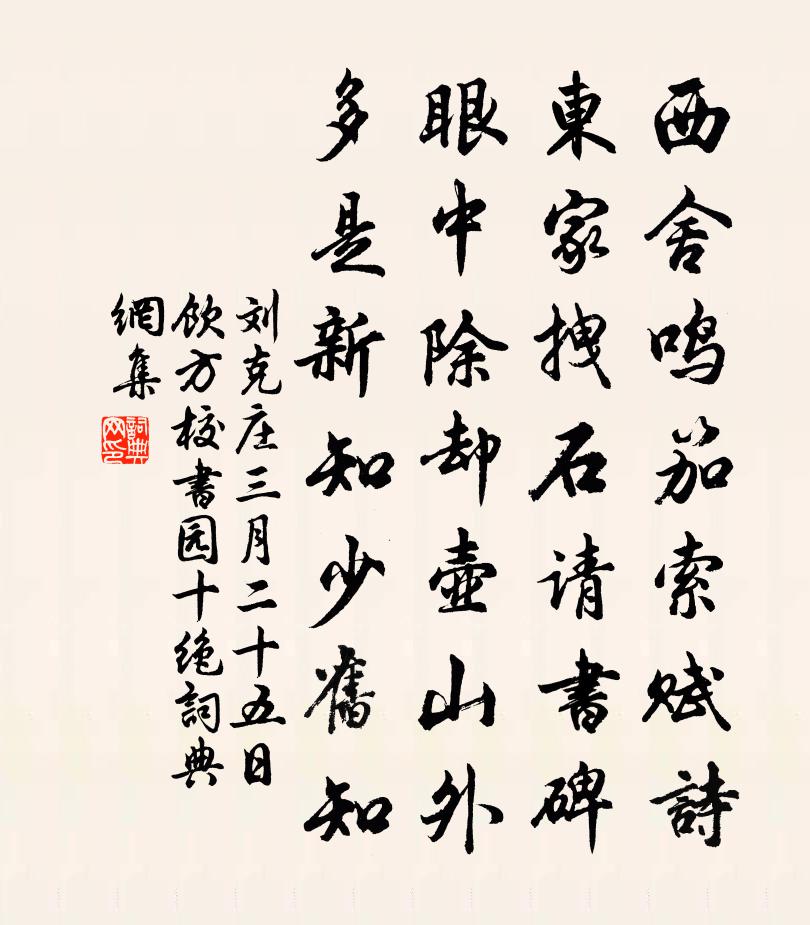 西舍鸣笳索赋詩
東家拽石请書碑
眼中除却壶山外
多是新知少舊知
刘克庄三月二十五日
饮方校書园十绝詞典
網集
詞典
网印